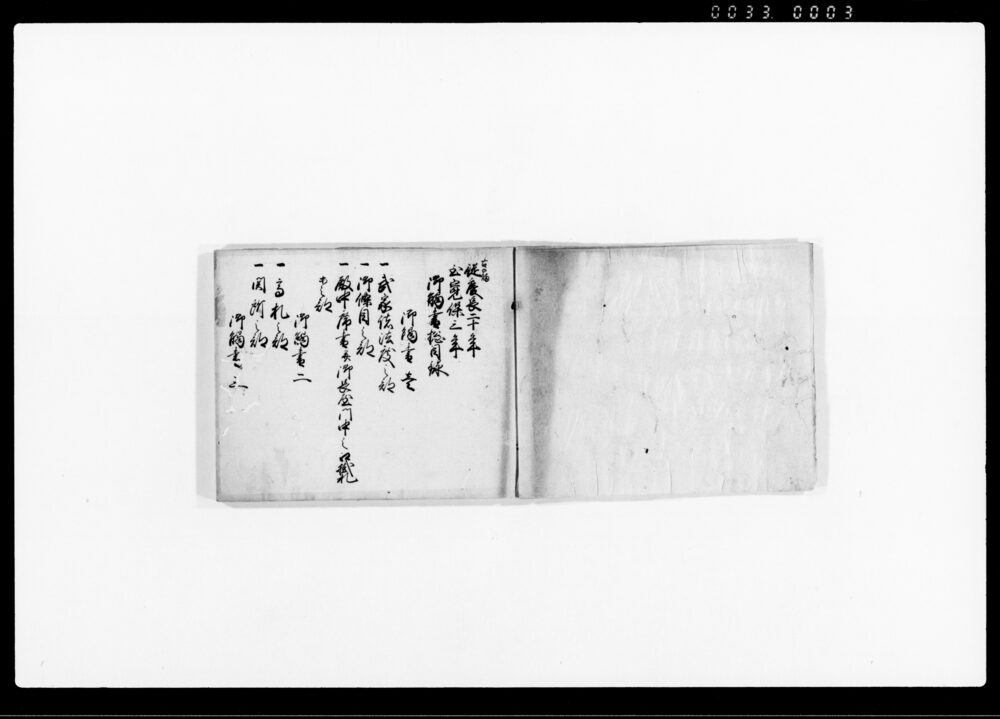 0033. 0003
従慶長二十年
至寛保三年
御觸書総目録
御觸書 壱
一 武家諸法度之部
一 御條目之部
一 殿中席書并御長屋門中之口張札
等之部
御觸書 二
一 高札之部
一 関所之部
御觸書 三